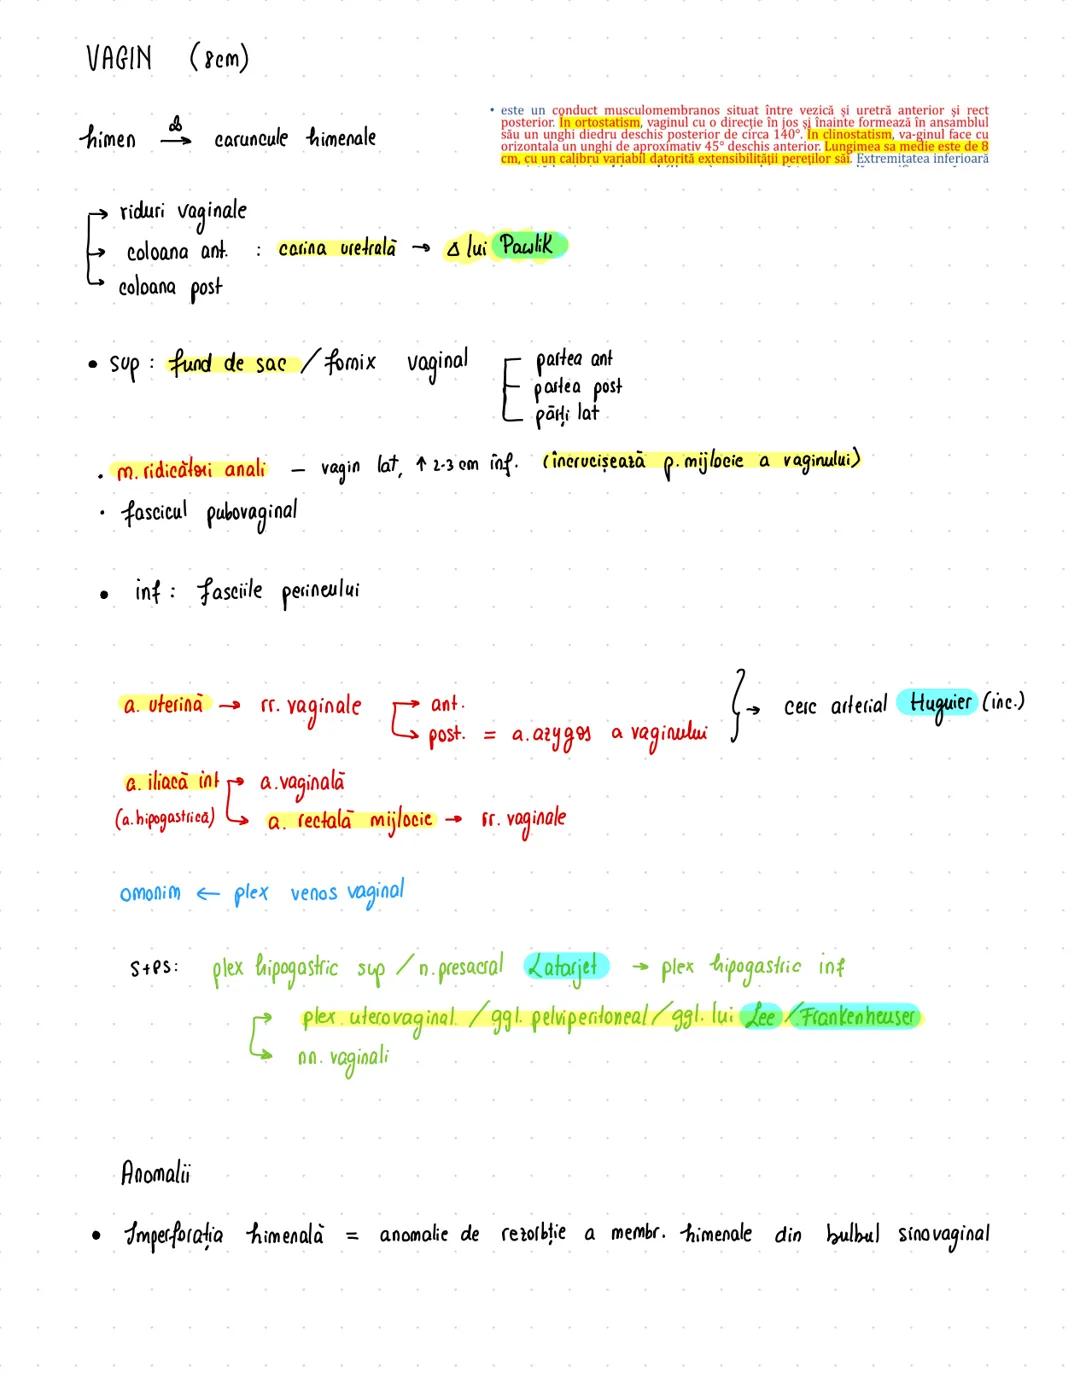 VAGIN (8cm)
• este un conduct musculomembranos situat între vezică și uretră anterior și rect
posterior. În ortostatism, vaginul cu o direcție în jos și înainte formează în ansamblul
său un unghi diedru deschis posterior de circa 140°. În clinostatism, va-ginul face cu
orizontala un unghi de aproximativ 45° deschis anterior. Lungimea sa medie este de 8
cm, cu un calibru variabil datorită extensibilității pereților săi. Extremitatea inferioară
himen → caruncule himenale
→ riduri vaginale
→ coloana ant. : carina uretrală → Δ lui Pawlik
→ coloana post
• sup : fund de sac / fornix vaginal
partea ant
partea post
părți lat
• m. ridicători anali – vagin lat, ↑ 2-3 cm inf. (încrucișează p. mijlocie a vaginului)
• fascicul pubovaginal
• inf : fasciile perineului
a. uterină → rr. vaginale → ant.
→ post. = a. azygos a vaginului } → cerc arterial Huguier (inc.)
a. iliacă int → a. vaginală
(a. hipogastrică) → a. rectală mijlocie → rr. vaginale
omonim ← plex venos vaginal
S+PS: plex hipogastric sup / n. presacral Latarjet → plex hipogastric inf
→ plex uterovaginal / ggl. pelviperitoneal / ggl. lui Lee / Frankenheuser
→ nn. vaginali
Anomalii
• Imperforația himenală = anomalie de rezorbție a membr. himenale din bulbul sinovaginal